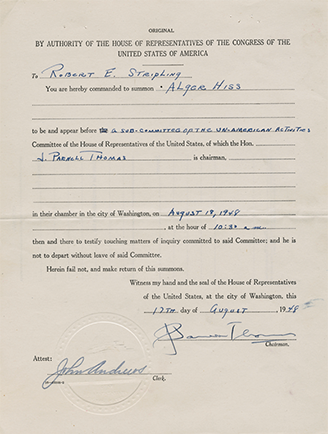 ORIGINAL
BY AUTHORITY OF THE HOUSE OF REPRESENTATIVES OF THE CONGRESS OF THE
UNITED STATES OF AMERICA
To ROBERT E. STRIPLING
You are hereby commanded to summon ALGER HISS
to be and appear before the A SUB-COMMITTEE OF THE UN-AMERICAN ACTIVITIES
Committee of the House of Representatives of the United States, of which the Hon.
J. PARNELL THOMAS is chairman,
in their chamber in the city of Washington, on AUGUST 1948
, at the hour of 10:30 a.m.
then and there to testify touching matters of inquiry committed to said Committee; and he is
not to depart without leave of said Committee.
Herein fail not, and make return of this summons.
Witness my hand and the seal of the House of Representatives
of the United States, at the city of Washington, this
17TH day of AUGUST, 1948
Chairman.
Attest:
John Andrews
Clerk.